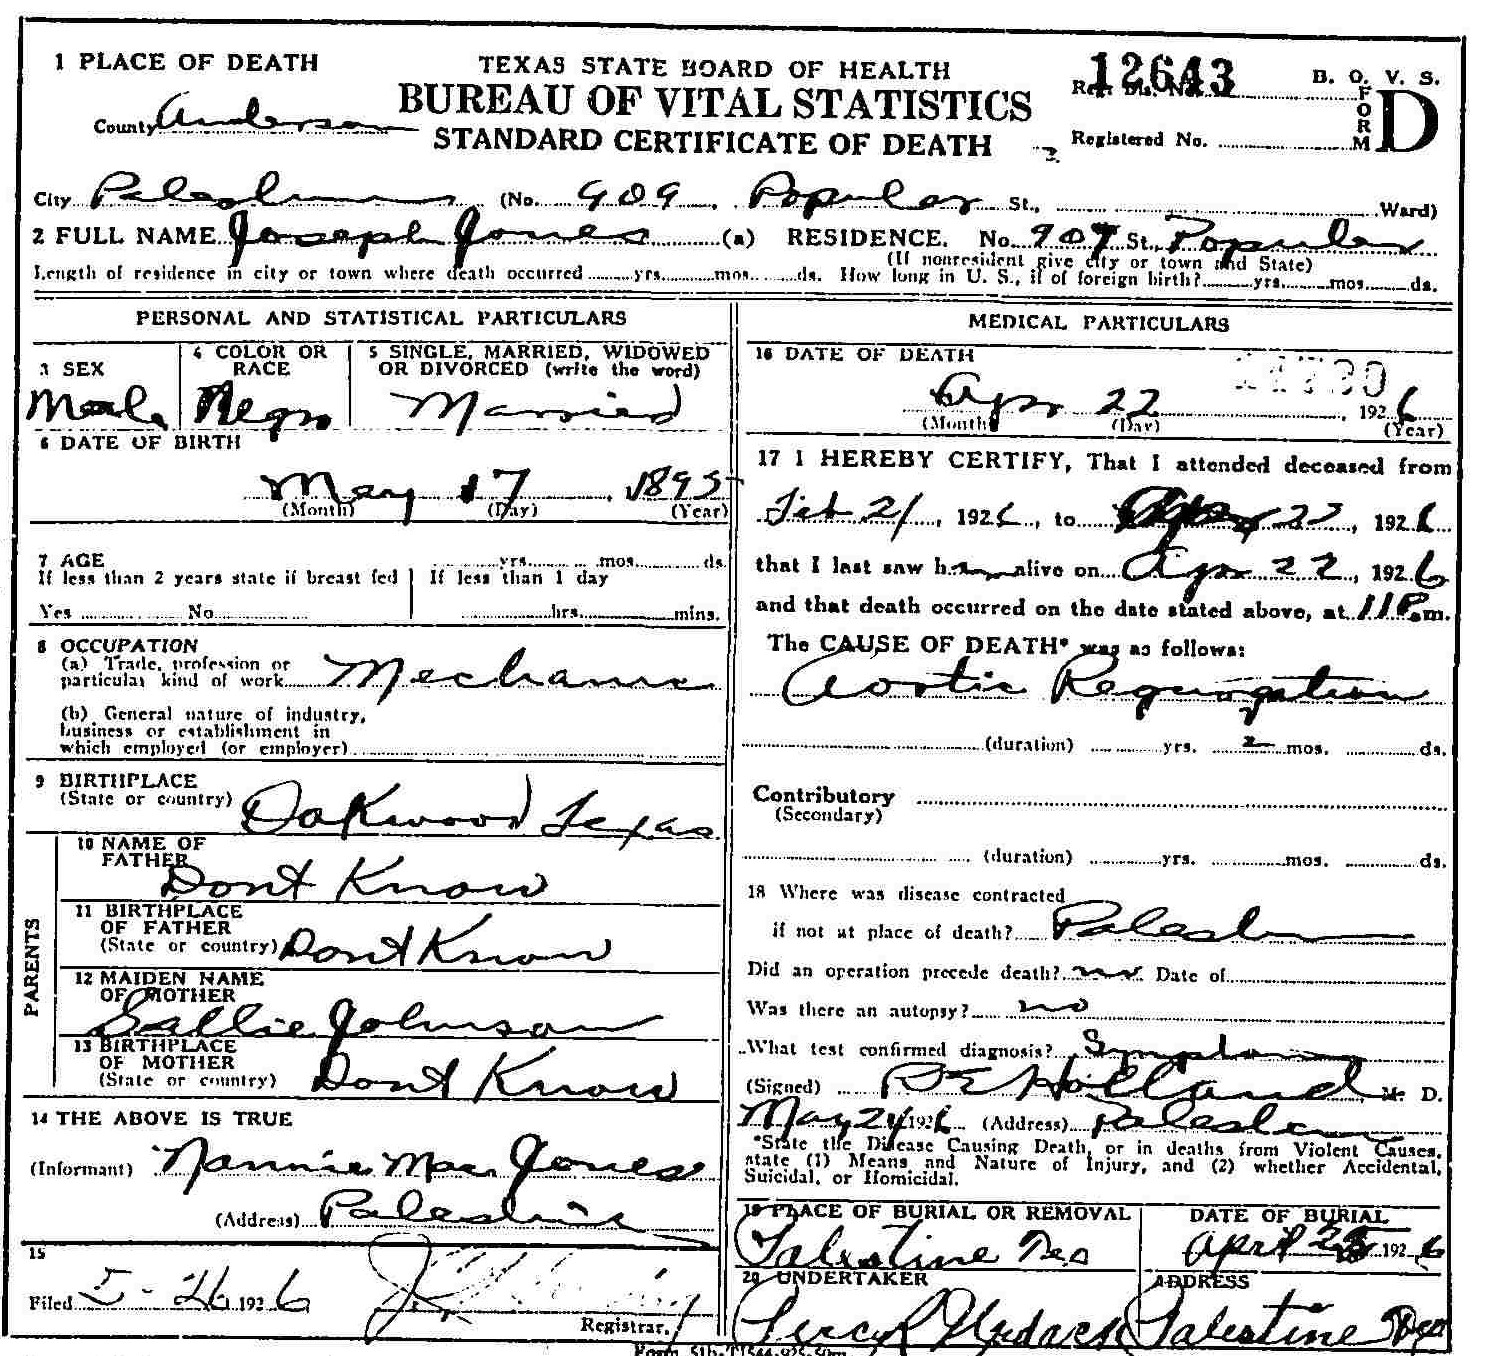 1 PLACE OF DEATH
TEXAS STATE BOARD OF HEALTH
BUREAU OF VITAL STATISTICS
STANDARD CERTIFICATE OF DEATH
12643
B. O. V. S.
FORM D
County Anderson
Registered No.
City Palestine (No. 909, Popular St., Ward)
2 FULL NAME Joseph Jones (a) RESIDENCE. No. 909 St., Popular
(If nonresident give city or town and State)
Length of residence in city or town where death occurred yrs. mos. ds. How long in U. S., if of foreign birth? yrs. mos. ds.
PERSONAL AND STATISTICAL PARTICULARS
3 SEX
Male
4 COLOR OR RACE
Negro
5 SINGLE, MARRIED, WIDOWED
OR DIVORCED (write the word)
Married
6 DATE OF BIRTH
May 17, 1895
(Month) (Day) (Year)
7 AGE yrs. mos. ds.
If less than 2 years state if breast fed
Yes No
If less than 1 day
hrs. mins.
8 OCCUPATION
(a) Trade, profession or
particular kind of work Mechanic
(b) General nature of industry,
business or establishment in
which employed (or employer)
9 BIRTHPLACE
(State or country) Oakwood Texas
PARENTS
10 NAME OF
FATHER
Dont Know
11 BIRTHPLACE
OF FATHER
(State or country) Dont Know
12 MAIDEN NAME
OF MOTHER
Sallie Johnson
13 BIRTHPLACE
OF MOTHER
(State or country) Dont Know
14 THE ABOVE IS TRUE
(Informant) Nannie Mae Jones
(Address) Palestine
15
Filed 5-26 1926
Registrar.
MEDICAL PARTICULARS
16 DATE OF DEATH
Apr 22, 1926
(Month) (Day) (Year)
17 I HEREBY CERTIFY, That I attended deceased from
Feb 21, 1926, to Apr 22, 1926
that I last saw him alive on Apr 22, 1926
and that death occurred on the date stated above, at 11 P.m.
The CAUSE OF DEATH* was as follows:
Aortic Regurgation
(duration) yrs. 2 mos. ds.
Contributory
(Secondary)
(duration) yrs. mos. ds.
18 Where was disease contracted
if not at place of death? Palestine
Did an operation precede death? no Date of
Was there an autopsy? no
What test confirmed diagnosis? Symptoms
(Signed) Holland, M. D.
May 24 1926 (Address) Palestine
*State the Disease Causing Death, or in deaths from Violent Causes,
state (1) Means and Nature of Injury, and (2) whether Accidental,
Suicidal, or Homicidal.
19 PLACE OF BURIAL OR REMOVAL
Palestine Tex
DATE OF BURIAL
April 1926
20 UNDERTAKER
Percy
ADDRESS
Palestine Tex